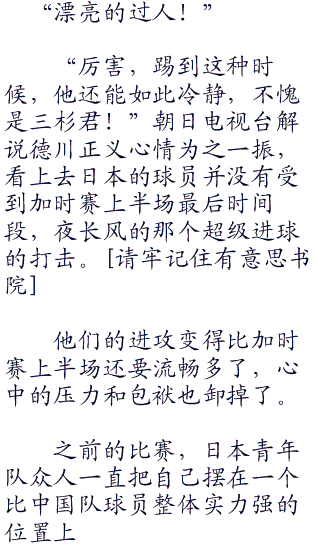 “漂亮的过人！”
“厉害，踢到这种时
候，他还能如此冷静，不愧
是三杉君！”朝日电视台解
说德川正义心情为之一振，
看上去日本的球员并没有受
到加时赛上半场最后时间
段，夜长风的那个超级进球
的打击。[请牢记住有意思书
院]
他们的进攻变得比加时
赛上半场还要流畅多了，心
中的压力和包袱也卸掉了。
之前的比赛，日本青年
队众人一直把自己摆在一个
比中国队球员整体实力强的
位置上